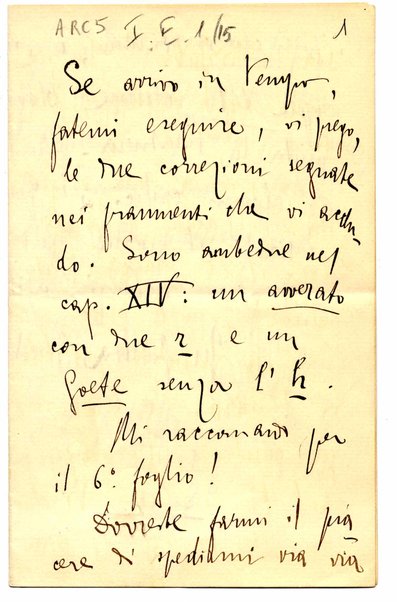 ARC5 I. E. 1/15 1
Se arrivo in tempo,
fatemi eseguire, vi prego,
le due correzioni segnate
nei frammenti che vi acclu-
do. Sono ambedue nel
cap. XIV: un avverato
con due r e un
Goete senza l' h.
Mi raccomando per
il 6º foglio!
Dovreste farmi il pia
cere di spedirmi via via